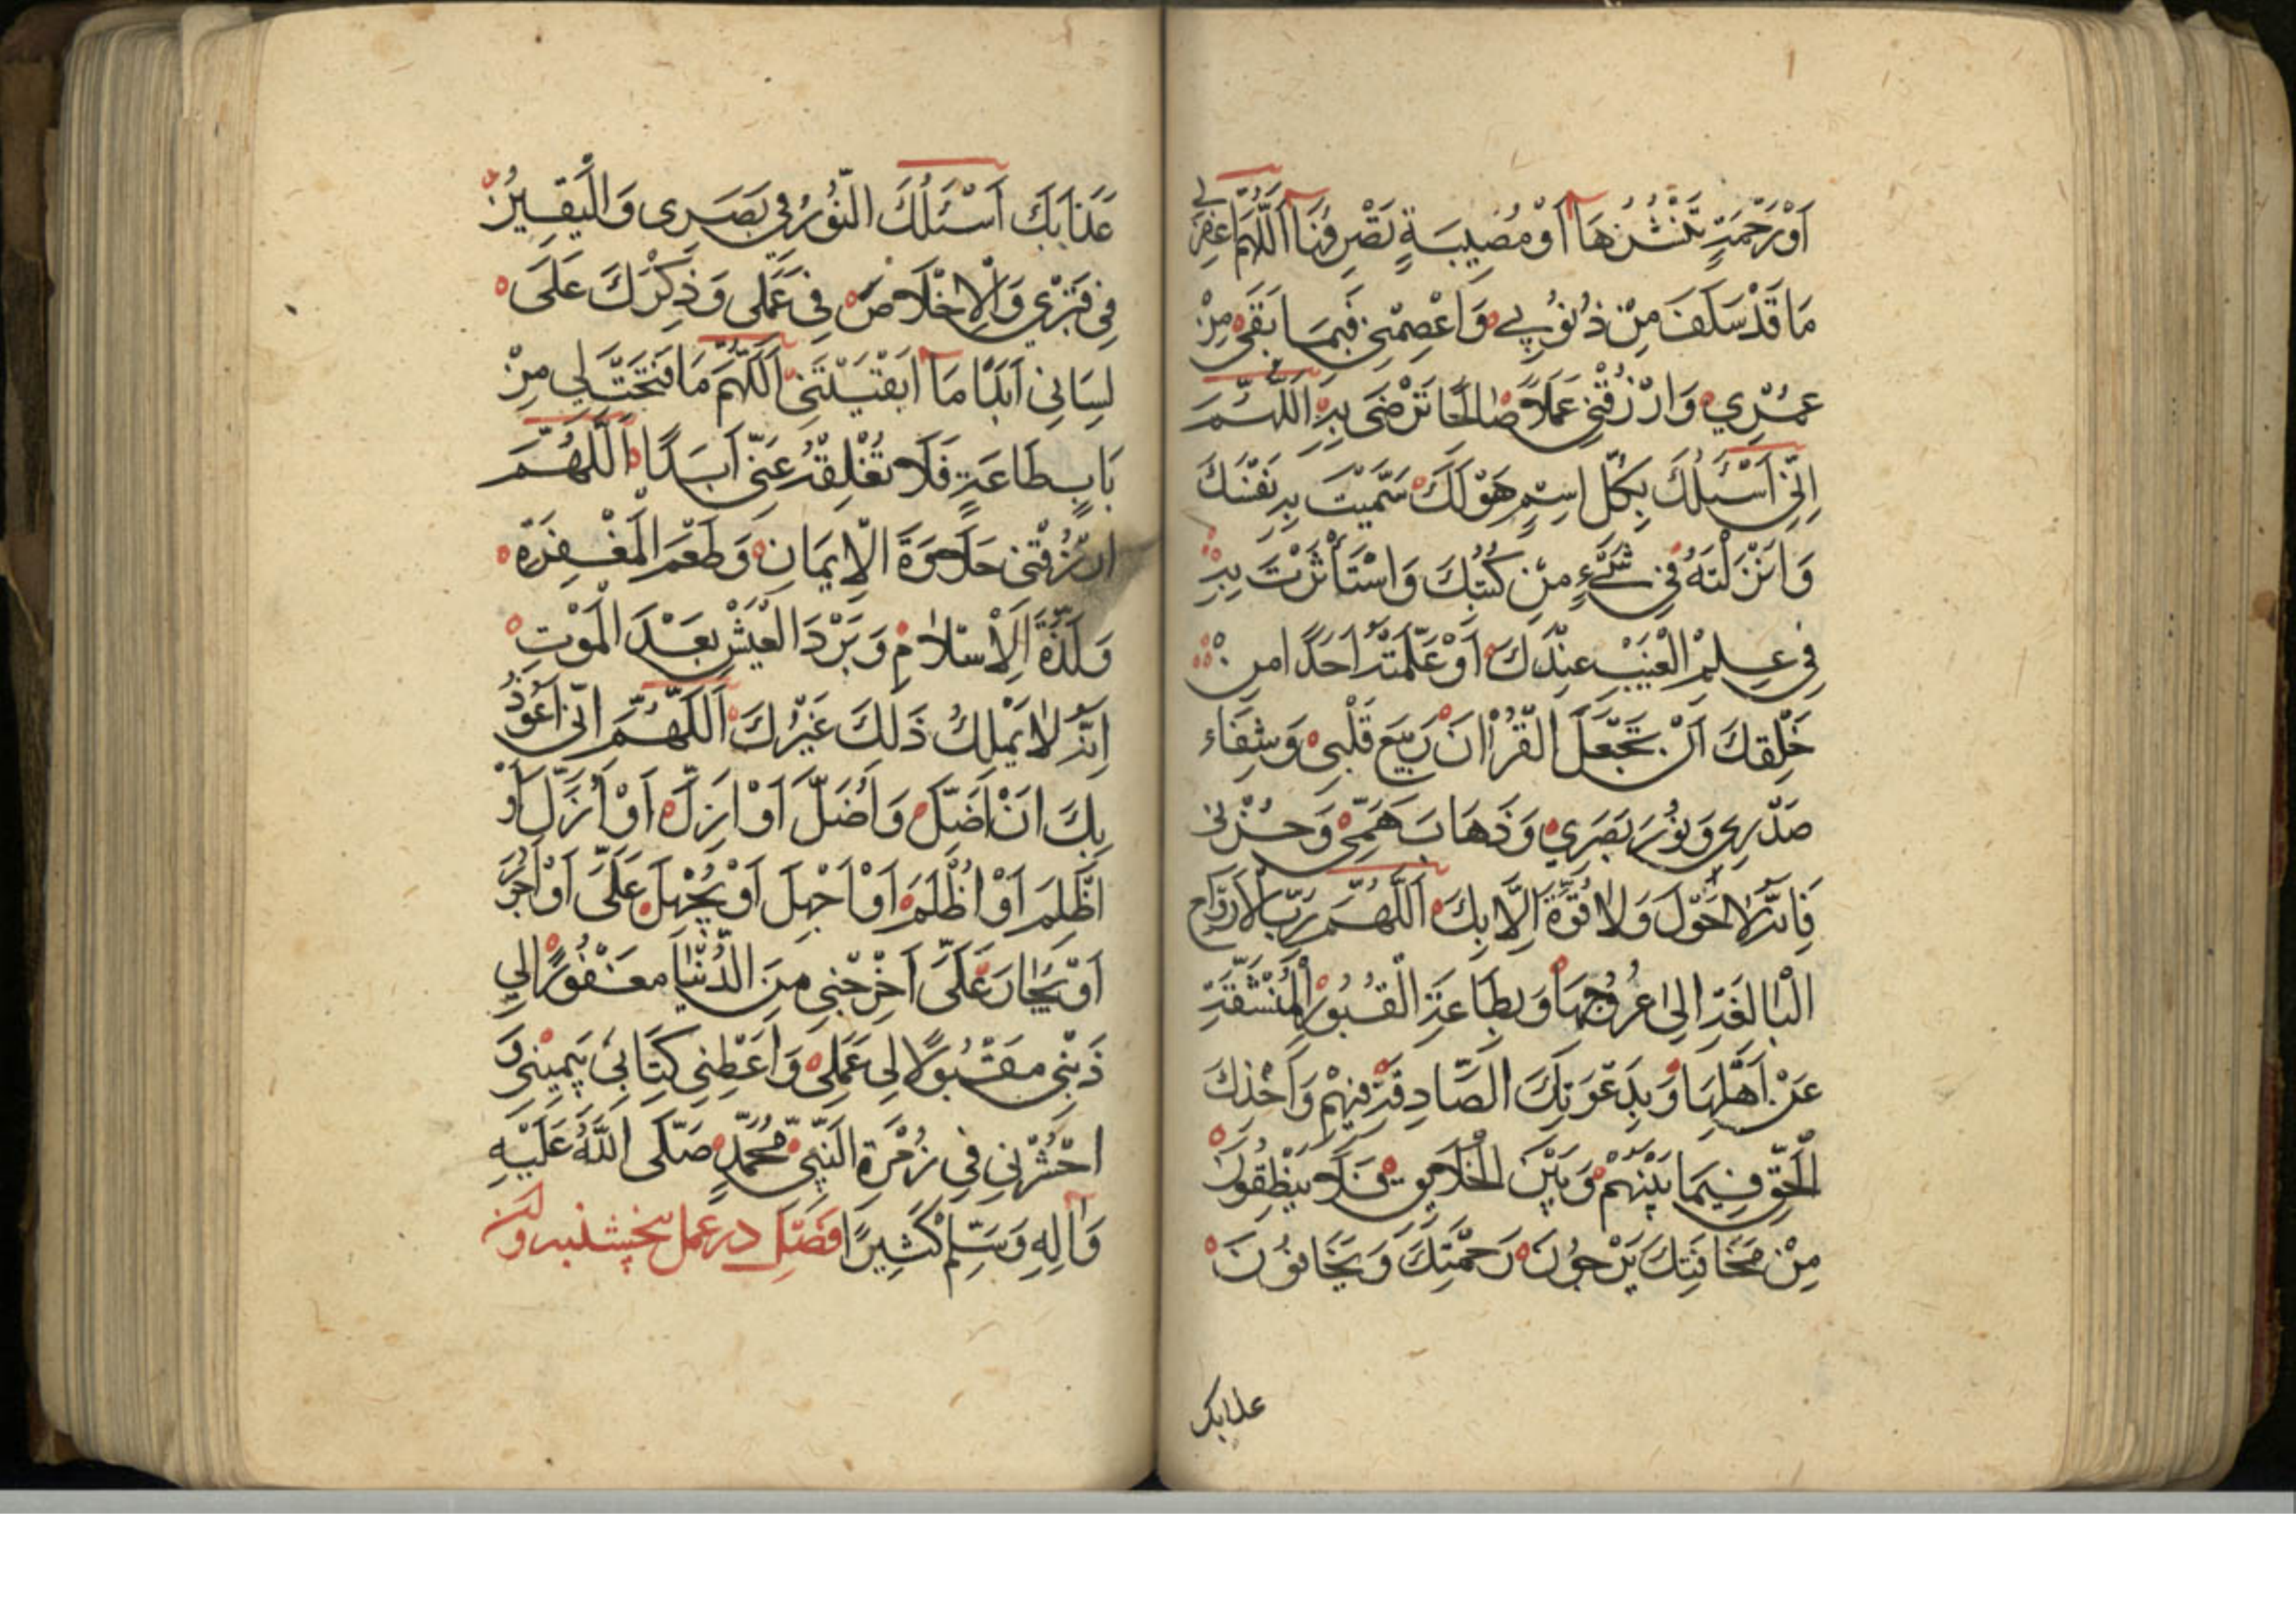 اَوْرَحْمَةٍ تَنْشُرُهَا اَوْ مُصِيبَةٍ تَصْرِفُنَا اَللّٰهُمَّ اغْفِرْلِي
مَا قَدْ سَلَفَ مِنْ ذُنُوبِي وَاعْصِمْنِي فِيمَا بَقَى مِنْ
عُمْرِي وَارْزُقْنِي عَمَلًا صَالِحًا تَرْضَى بِهِ اَللّٰهُمَّ
اِنِّي اَسْئَلُكَ بِكُلِّ اسْمٍ هُوَ لَكَ سَمَّيْتَ بِهِ نَفْسَكَ
وَاَنْزَلْتَهُ فِي شَيْءٍ مِنْ كُتُبِكَ وَاسْتَأْثَرْتَ بِهِ
فِي عِلْمِ الْغَيْبِ عِنْدَكَ اَوْ عَلَّمْتَهُ اَحَدًا مِنْ
خَلْقِكَ اَنْ تَجْعَلَ الْقُرْاٰنَ رَبِيعَ قَلْبِي وَشِفَاءَ
صَدْرِي وَنُورَ بَصَرِي وَذَهَابَ هَمِّي وَحُزْنِي
فَاِنَّهُ لَا حَوْلَ وَلَا قُوَّةَ اِلَّا بِكَ اَللّٰهُمَّ رَبَّ الْاَرْوَاحِ
الْبَالِغَةِ اِلٰى عُرُوجِهَا وَبِطَاعَةِ الْقُبُورِ الْمُنْشَقَّةِ
عَنْ اَهْلِهَا وَبِدَعْوَتِكَ الصَّادِقَةِ فِيهِمْ وَاَخْذِكَ
الْحَقَّ فِيمَا بَيْنَهُمْ وَبَيْنَ الْخَلَايِقِ فَلَا يَنْطِقُونَ
مِنْ مَخَافَتِكَ يَرْجُونَ رَحْمَتَكَ وَيَخَافُونَ
عذابك
عَذَابَكَ اَسْئَلُكَ النُّورَ فِي بَصَرِي وَالْيَقِينَ
فِي قَبْرِي وَالْاِخْلَاصَ فِي عَمَلِي وَذِكْرَكَ عَلَى
لِسَانِي اَبَدًا مَا اَبْقَيْتَنِي اَللّٰهُمَّ مَا فَتَحْتَ لِي مِنْ
بَابِ طَاعَةٍ فَلَا تُغْلِقْهُ عَنِّي اَبَدًا اَللّٰهُمَّ
ارْزُقْنِي حَلَاوَةَ الْاِيمَانِ وَطَعْمَ الْمَغْفِرَةِ
وَلَذَّةَ الْاِسْلَامِ وَبَرْدَ الْعَيْشِ بَعْدَ الْمَوْتِ
اِنَّهُ لَا يَمْلِكُ ذَلِكَ غَيْرُكَ اَللّٰهُمَّ اِنِّي اَعُوذُ
بِكَ اَنْ اَضِلَّ وَاُضَلَّ اَوْ اَزِلَّ اَوْ اُزَلَّ اَوْ
اَظْلِمَ اَوْ اُظْلَمَ اَوْ اَجْهَلَ اَوْ يُجْهَلَ عَلَىَّ اَوْ اَجُرَ
اَوْ يُجَارَ عَلَىَّ اَخْرِجْنِي مِنَ الدُّنْيَا مَغْفُورًا لِي
ذَنْبِي مَقْبُولًا لِي عَمَلِي وَاَعْطِنِي كِتَابِي بِيَمِينِي وَ
احْشُرْنِي فِي زُمْرَةِ النَّبِيِّ مُحَمَّدٍ صَلَّى اللّٰهُ عَلَيْهِ
وَاٰلِهِ وَسَلِّمْ كَثِيرًا فَصْل در عمل پنجشنبه و